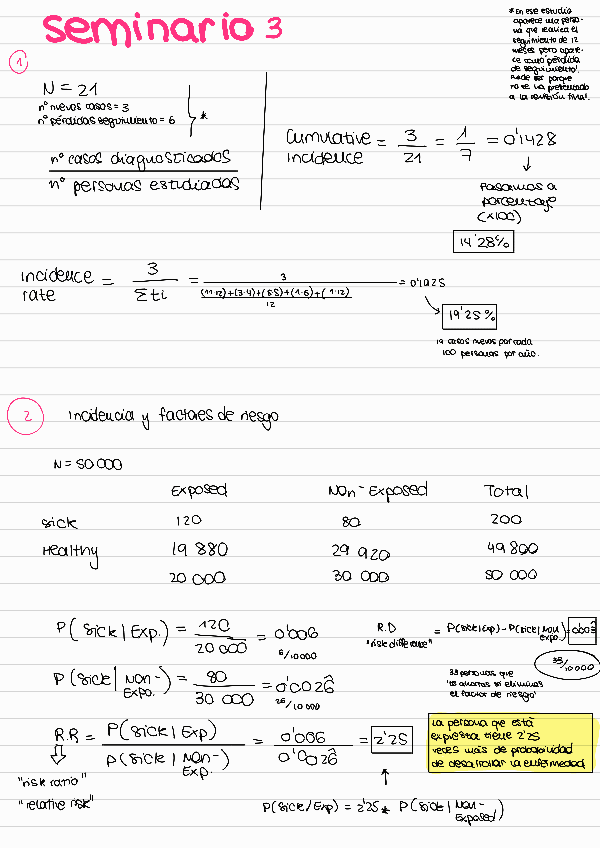 seminario 3
* En ese estudio
aparece una perso-
na que realiza el
seguimiento de 12
meses pero apare-
ce como 'pérdida
de seguimiento'.
Puede ser porque
no se ha presentado
a la revisión final.
1
N = 21
nº nuevos casos = 3
nº pérdidas seguimiento = 6
*
nº casos diagnosticados
nº personas estudiadas
Cumulative incidence = 3/21 = 1/7 = 0'1428
Pasamos a
porcentaje
(x100)
14'28%
incidence rate = 3/Σti = 3/((11·12)+(3·4)+(5·5)+(1·6)+(1·12)/12) = 0'1925
19'25%
19 casos nuevos por cada
100 personas por año.
2 Incidencia y factores de riesgo
N = 50 000
Exposed Non-Exposed Total
sick 120 80 200
Healthy 19 880 29 920 49 800
20 000 30 000 50 000
P(sick | Exp.) = 120/20 000 = 0'006
6/10000
R.D = P(sick | Exp) - P(sick | Non Expo.) = 0'003̂
"risk difference"
33/10000
P(sick | Non-Expo.) = 80/30 000 = 0'0026̂
26/10000
33 personas que
te ahorras si eliminas
el factor de riesgo
R.R = P(sick | Exp)/P(sick | Non-Exp.) = 0'006/0'0026̂ = 2'25
La persona que está
expuesta tiene 2'25
veces más de probabilidad
de desarrollar la enfermedad
"risk ratio"
"relative risk"
P(sick/Exp) = 2'25 * P(sick | Non-Exposed)